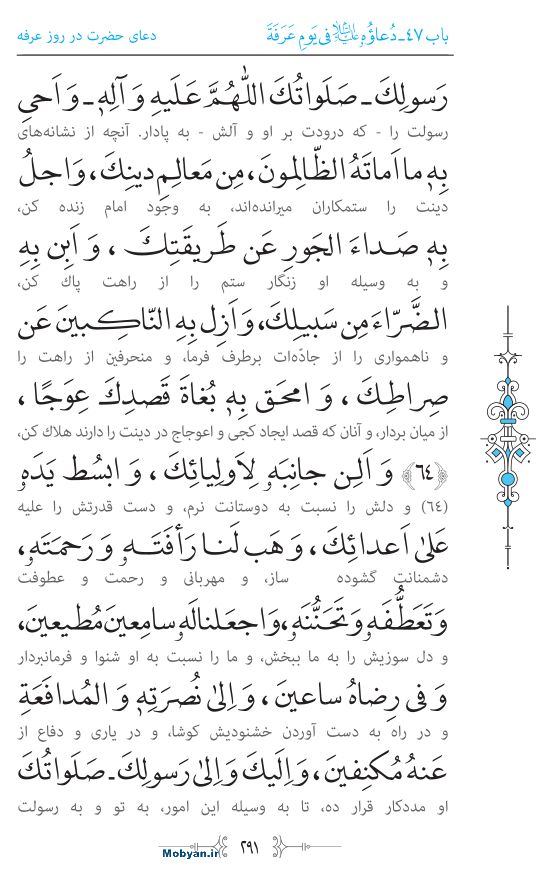 باب ٤٧ـ دُعاؤُهُ عليه‌السلام فى يَومِ عَرَفَةَ
دعای حضرت در روز عرفه
رَسولِكَ ـ صَلَواتُكَ اللّٰهُمَّ عَلَيهِ وَ آلِهٖ ـ وَ اَحيِ
رسولت را - که درودت بر او و آلش - به پادار. آنچه از نشانه‌های
بِهٖ ما اَماتَهُ الظّالِمونَ، مِن مَعالِمِ دينِكَ، وَ اجلُ
دینت را ستمکاران میرانده‌اند، به وجود امام زنده کن،
بِهٖ صَداءَ الجَورِ عَن طَريقَتِكَ ، وَ اَبِن بِهِ
و به وسیله او زنگار ستم را از راهت پاك کن،
الضَّرّاءَ مِن سَبيلِكَ، وَ اَزِل بِهِ النّاكِبينَ عَن
و ناهمواری را از جادّه‌ات برطرف فرما، و منحرفین از راهت را
صِراطِكَ ، وَ امحَق بِهٖ بُغاةَ قَصدِكَ عِوَجًا ،
از میان بردار، و آنان که قصد ایجاد کجی و اعوجاج در دینت را دارند هلاك کن،
﴿٦٤﴾ وَ اَلِن جانِبَهٗ لِاَولِيائِكَ ، وَ ابسُط يَدَهٗ
(٦٤) و دلش را نسبت به دوستانت نرم، و دست قدرتش را علیه
عَلىٰ اَعدائِكَ ، وَ هَب لَنا رَأفَتَهٗ وَ رَحمَتَهٗ،
دشمنانت گشوده ساز، و مهربانی و رحمت و عطوفت
وَ تَعَطُّفَهٗ وَ تَحَنُّنَهٗ، وَ اجعَلنا لَهٗ سامِعينَ مُطيعينَ،
و دل سوزیش را به ما ببخش، و ما را نسبت به او شنوا و فرمانبردار
وَ فى رِضاهُ ساعينَ ، وَ اِلىٰ نُصرَتِهٖ وَ المُدافَعَةِ
و در راه به دست آوردن خشنودیش کوشا، و در یاری و دفاع از
عَنهُ مُكنِفينَ، وَ اِلَيكَ وَ اِلىٰ رَسولِكَ ـ صَلَواتُكَ
او مددکار قرار ده، تا به وسیله این امور، به تو و به رسولت
٢٩١
Mobyan.ir